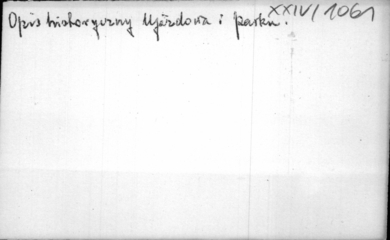 XXIV/1061
Opis historyczny Ujazdowa i parku.